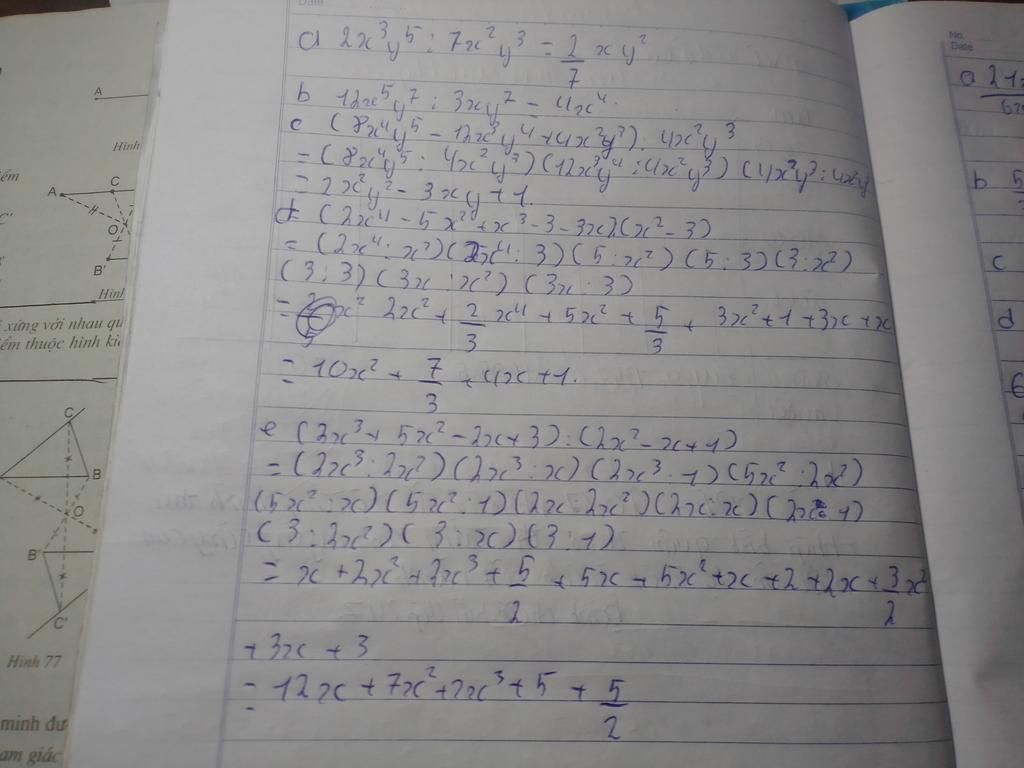 Date
a 2x³y⁵ : 7x²y³ = 2/7 xy²
b 12x⁵y⁷ : 3xy⁷ = 4x⁴.
c (8x⁴y⁵ - 12x³y⁴ + 4x²y³) : 4x²y³
= (8x⁴y⁵ : 4x²y³) (12x³y⁴ : 4x²y³) (4x²y³ : 4x²y³
= 2x²y² - 3xy + 1.
d (2x⁴ - 5x² + x³ - 3 - 3x) (x² - 3)
= (2x⁴ : x²) (2x⁴ : 3) (5 : x²) (5 : 3) (3 : x²)
(3 : 3) (3x : x²) (3x : 3)
= x² 2x² + 2/3 x⁴ + 5x² + 5/3 + 3x² + 1 + 3x + x
= 10x² + 7/3 + 4x + 1.
e (2x³ + 5x² - 2x + 3) : (2x² - x + 1)
= (2x³ : 2x²) (2x³ : x) (2x³ : 1) (5x² : 2x²)
(5x² : x) (5x² : 1) (2x : 2x²) (2x : x) (2x : 1)
(3 : 2x²) (3 : x) (3 : 1)
= x + 2x² + 2x³ + 5/2 + 5x + 5x² + x + 2 + 2x + 3/2 x²
+ 3x + 3
= 12x + 7x² + 2x³ + 5 + 5/2
A
Hình
A
C
O
B'
Hình
xứng với nhau qu
iểm thuộc hình
C
B
O
B'
C'
Hình 77
minh đư
am giác
No.
Date
a
b 5
c
d